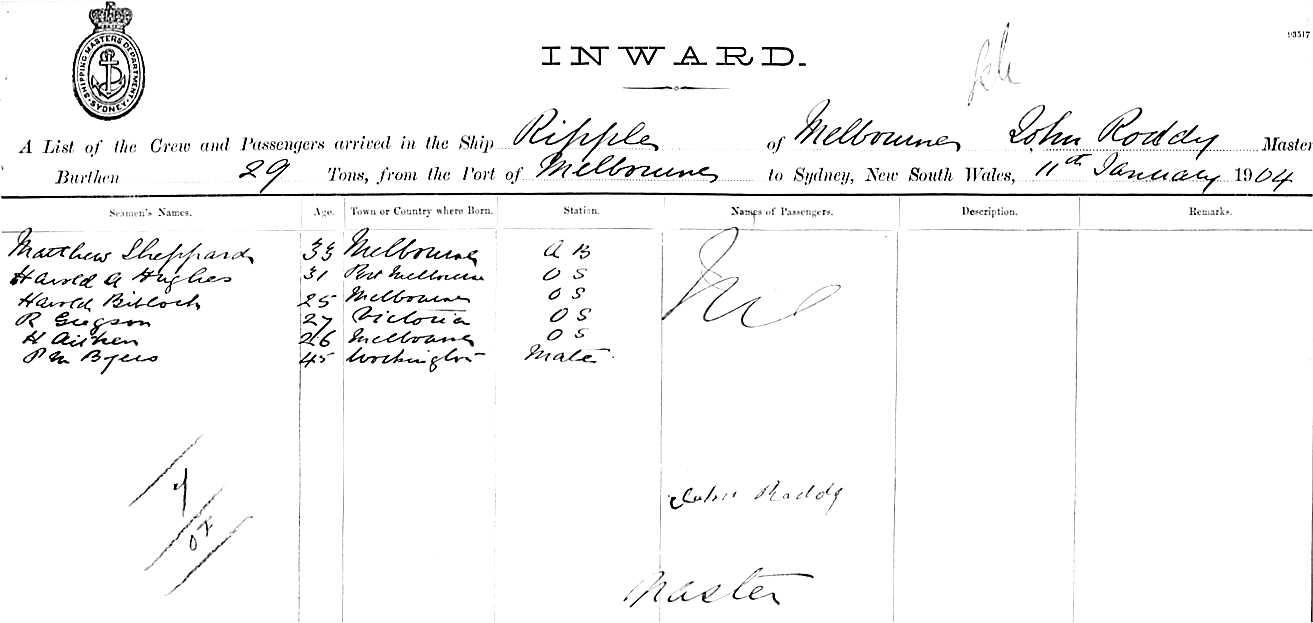 SHIPPING MASTERS DEPARTMENT SYDNEY
93517
INWARD.
A List of the Crew and Passengers arrived in the Ship Ripple of Melbourne John Roddy Master
Burthen 29 Tons, from the Port of Melbourne to Sydney, New South Wales, 11th January 1904
Seamen's Names. Age. Town or Country where Born. Station. Names of Passengers. Description. Remarks.
Matthew Sheppard 33 Melbourne A B
Harold A Hughes 31 Port Melbourne O S
Harold 25 Melbourne O S
R Gregson 27 Victoria O S
H Aitken 26 Melbourne O S
P M Byers 45 Workington Mate
Nil
John Roddy
Master